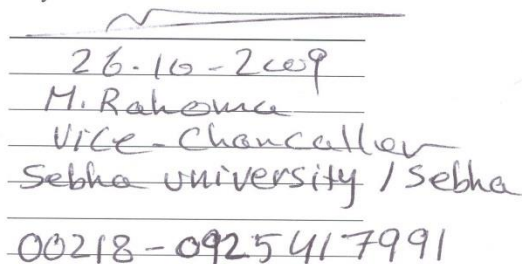 26.10-2009
M. Rahoma
Vice-Chancallor
Sebha university / Sebha
00218-0925417991